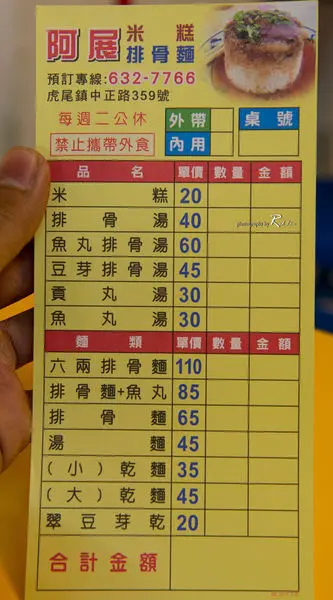 阿展 米糕
排骨麵
預訂專線:632-7766
虎尾鎮中正路359號
每週二公休
禁止攜帶外食
外帶
內用
桌號
品名 單價 數量 金額
米糕 20
排骨湯 40
魚丸排骨湯 60
豆芽排骨湯 45
貢丸湯 30
魚丸湯 30
麵類 單價 數量 金額
六兩排骨麵 110
排骨麵+魚丸 85
排骨麵 65
湯麵 45
(小)乾麵 35
(大)乾麵 45
翠豆芽乾 20
合計金額